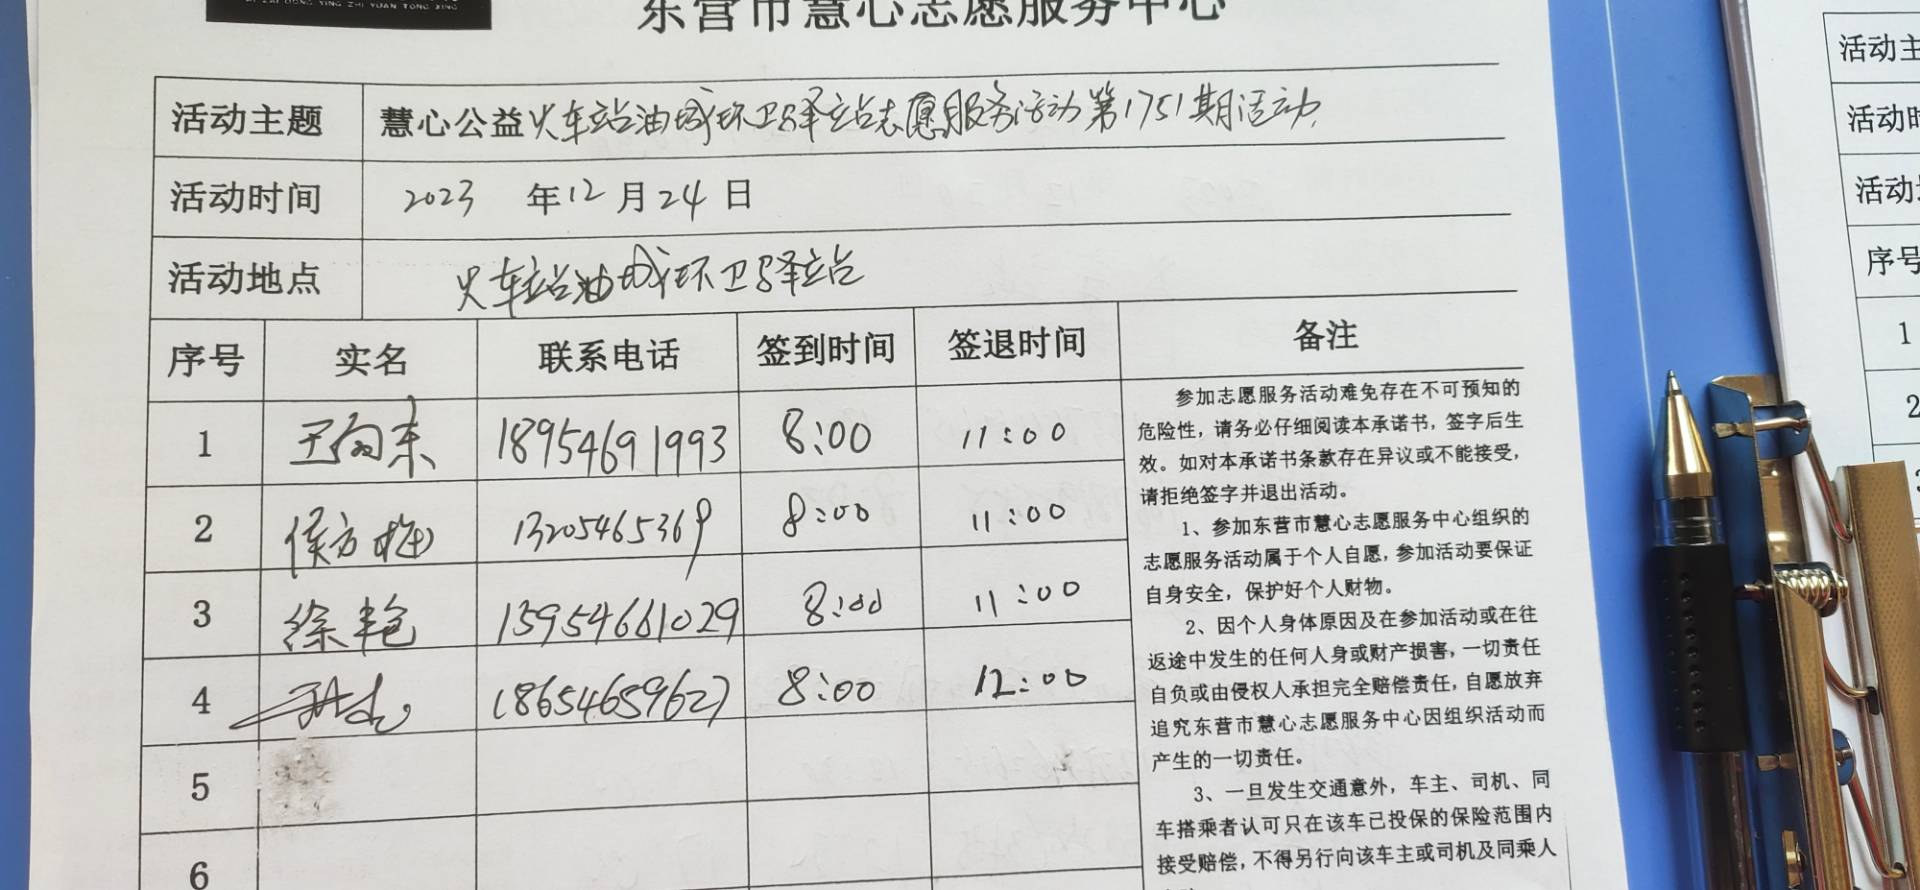 AI ZAI DONG YING ZHI YUAN TONG XING
东营市慧心志愿服务中心
活动主题 慧心公益火车站油城环卫驿站志愿服务活动第1751期活动
活动时间 2023 年12月24日
活动地点 火车站油城环卫驿站
序号 实名 联系电话 签到时间 签退时间 备注
1 王向东 18954691993 8:00 11:00
2 侯方梅 13205465369 8:00 11:00
3 徐艳 15954661029 8:00 11:00
4 18654659627 8:00 12:00
5
6
参加志愿服务活动难免存在不可预知的
危险性，请务必仔细阅读本承诺书，签字后生
效。如对本承诺书条款存在异议或不能接受，
请拒绝签字并退出活动。
1、参加东营市慧心志愿服务中心组织的
志愿服务活动属于个人自愿，参加活动要保证
自身安全，保护好个人财物。
2、因个人身体原因及在参加活动或在往
返途中发生的任何人身或财产损害，一切责任
自负或由侵权人承担完全赔偿责任，自愿放弃
追究东营市慧心志愿服务中心因组织活动而
产生的一切责任。
3、一旦发生交通意外，车主、司机、同
车搭乘者认可只在该车已投保的保险范围内
接受赔偿，不得另行向该车主或司机及同乘人
活动主
活动时
活动
序号
1
2